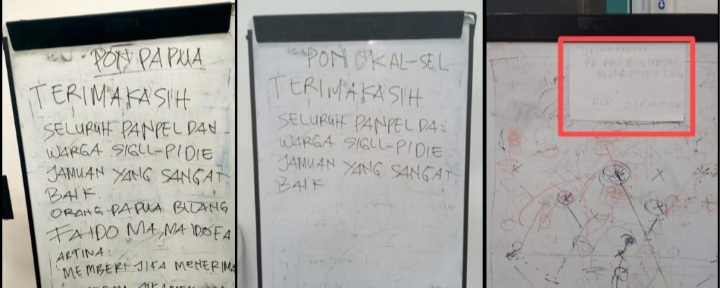 PON PAPUA
TERIMAKASIH
SELURUH PANPEL DAN
WARGA SIGLL-PIDIE
JAMUAN YANG SANGAT
BAIK
ORANG PAPUA BILANG
FAIDO MA, MAIDOFA
ARTINA:
MEMBERI JIFA MENERIMA
PON KAL-SEL
TERIMAKASIH
SELURUH PANPEL DA
WARGA SIGLL-PIDIE
JAMUAN YANG SANGAT
BAIK